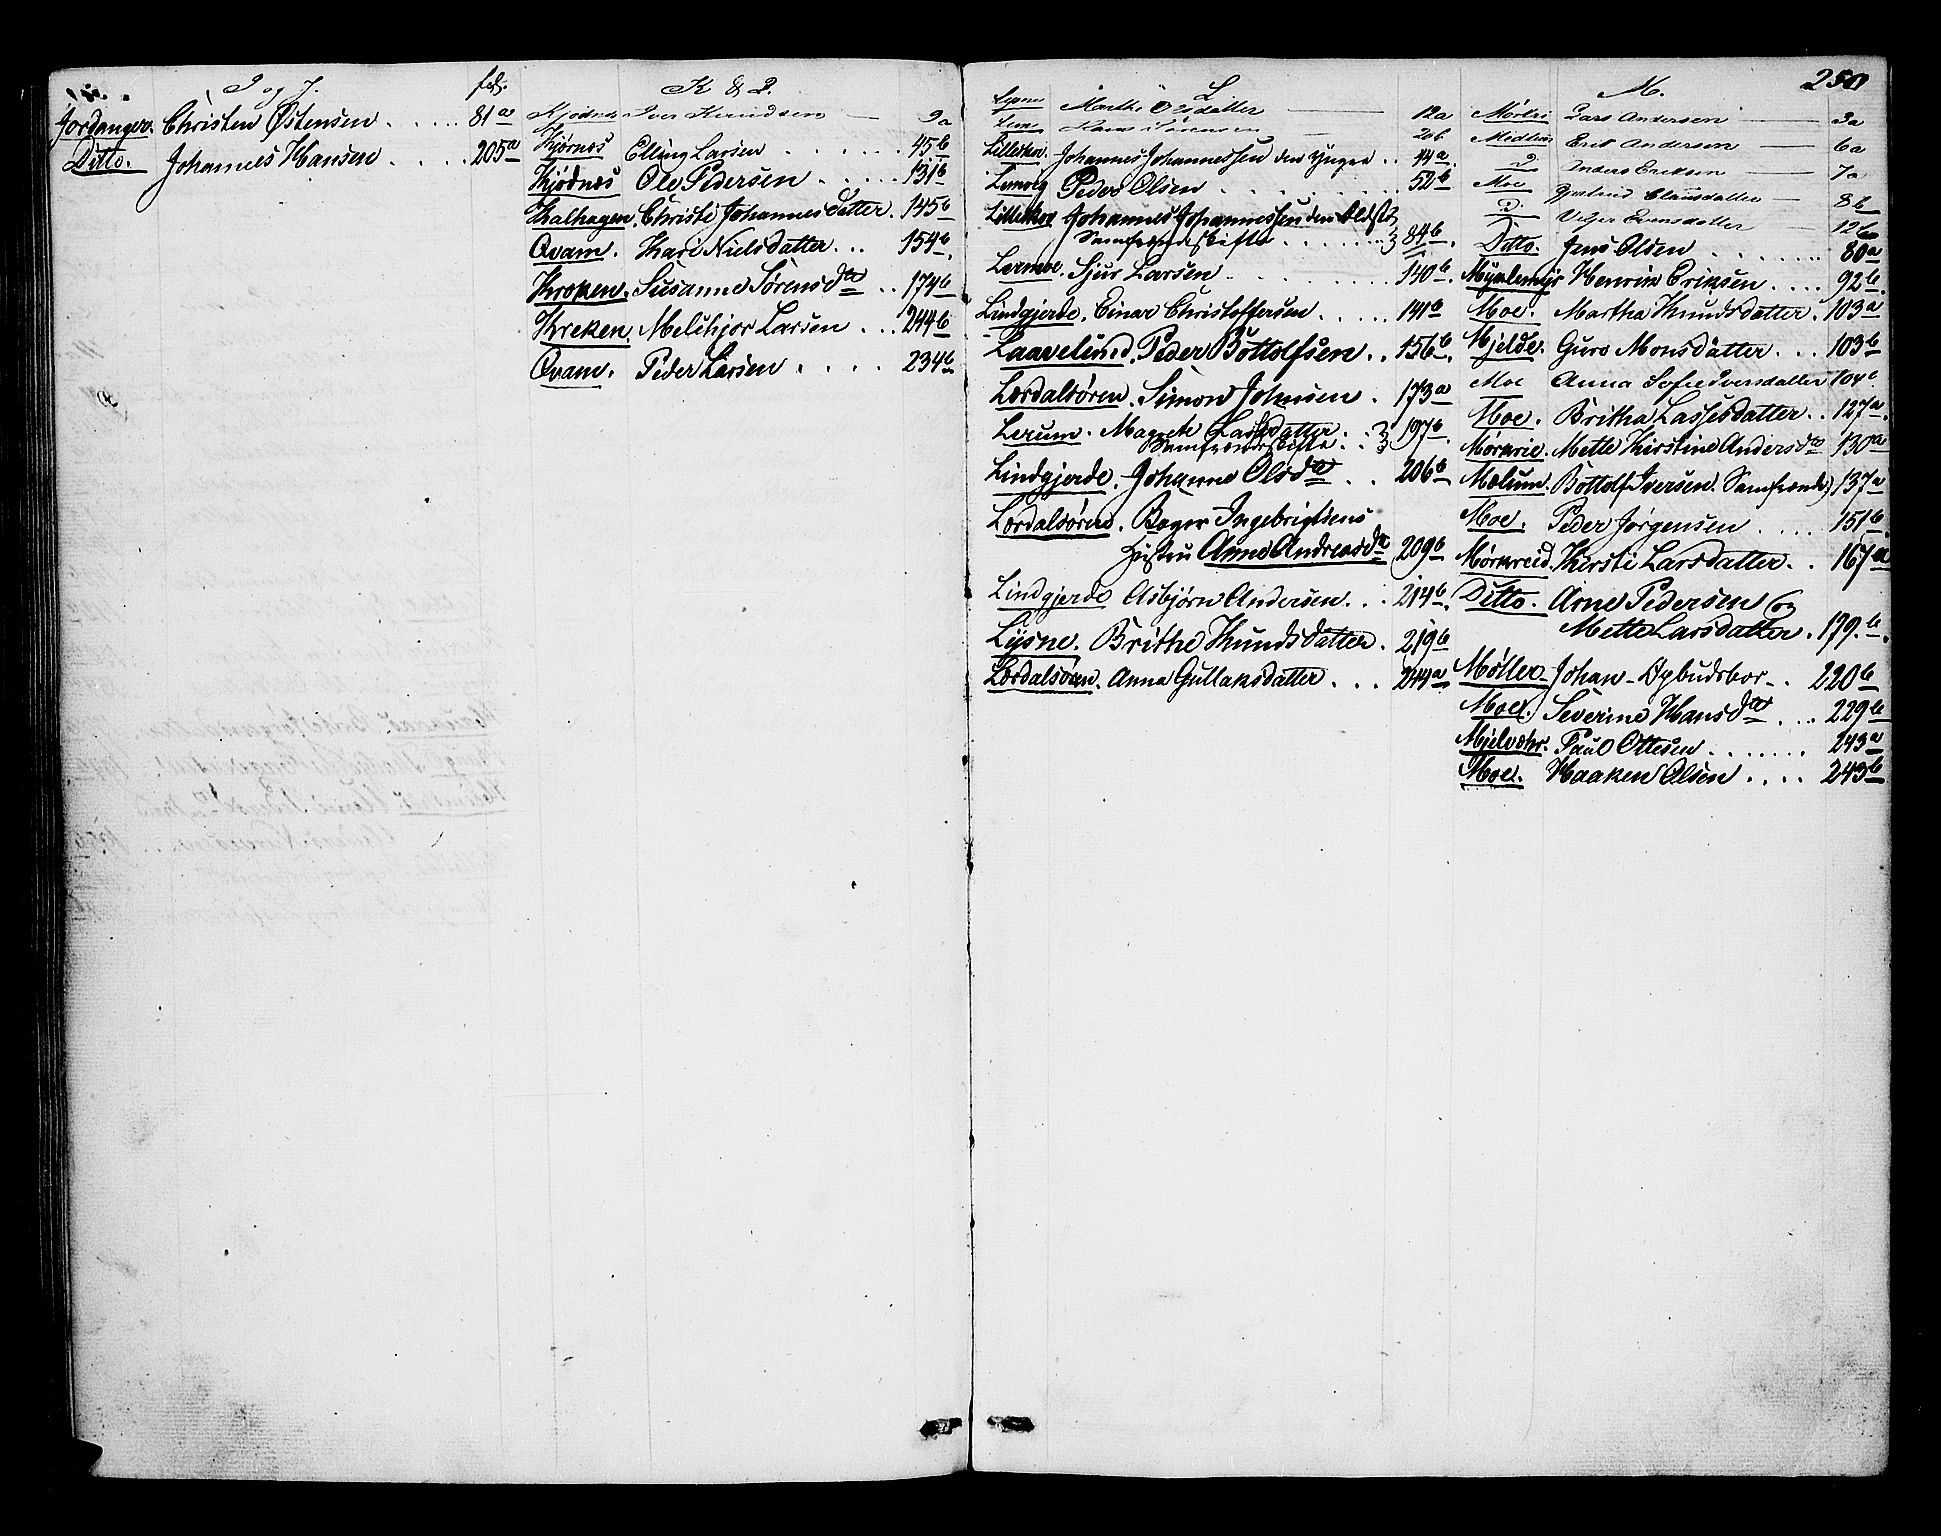 I og J. fol.
Jordanger. Christen Østensen . . . . . 81a
Ditto. Johannes Hansen . . . . 205a
K & Q.
Kjødnes Iver Knudsen — 9a
Kjørnes Elling Larsen . . . . . . 45b
Kjødnes Ole Pedersen . . . . . 131b
Kalhagen. Christi Johannesdatter. 145b
Qvam. Kari Nielsdatter. . . 154b.
Kroken. Susanne Sørensdtr . . 174b
Kroken. Melchjor Larsen . . . 244b
Qvam. Peder Larsen . . . . 234b
L
Lysne Marthe Olsdatter — 12a
Hans — 20b
Lilleskou. Johannes Johannessen den Yngre . . 44a.
Peder Olsen . . . . . . . . 52b
Lilleskou Johannes Johannessen den Ældste
Samfrændeskifte . . . . . . . 84b.
Lermoe. Sjur Larsen . . . . . . . 140b.
Lindgjerde. Einar Christoffersen . . . . . 141b
Laavelund. Peder Bottolfsen . . 156b.
Lærdalsøren. Simon Johnsen . 173a
Lerum. Magrete Lassesdatter . .
Samfrændeskifte . . 197b.
Lindgjerde. Johanne Olsdtr . . 206b
Lærdalsøren. Bager Ingebrigtsens
Hustru Anne Andreasdtr 209b
Lindgjerde Asbjørn Andersen . . . 214b.
Lysne. Brithe Knudsdatter . 219b
Lærdalsøren. Anna Gullaksdatter . . . 244a
M. 250
Mørkri Lars Andersen — 3a
Erik Andersen — 6a
D Anders Eriksen — 7a
Moe Gjertrud Clausdatter — 8b
D. — 12b
Ditto. Jens Olsen . . . . . . . . 80a
Myklemyr Henrik Eriksen . . . . 92b.
Moe. Martha Knudsdatter . 103a
Mjelde. Guro Monsdatter . . . 103b
Moe Anna Sofie Iversdatter 104b
Moe. Britha Lassesdatter . . 127a.
Mørkrie. Mette Kirstine Andersdtr 130a
Mælum. Bottolf Iversen. Samfrænde) 137a
Moe. Peder Jørgensen . . . . 151b.
Mørkreid. Kirsti Larsdatter. . 167a
Ditto. Arne Pedersen og
Mette Larsdatter . 179.b.
Møller Johan - Opbudsbo - . . 220b
Moe. Severine Hansdtr . . . 229b
Mjelvøhr. Paul Ottesen . . . . . . . 243a
Moe. Haaken Olsen . . . . 243b